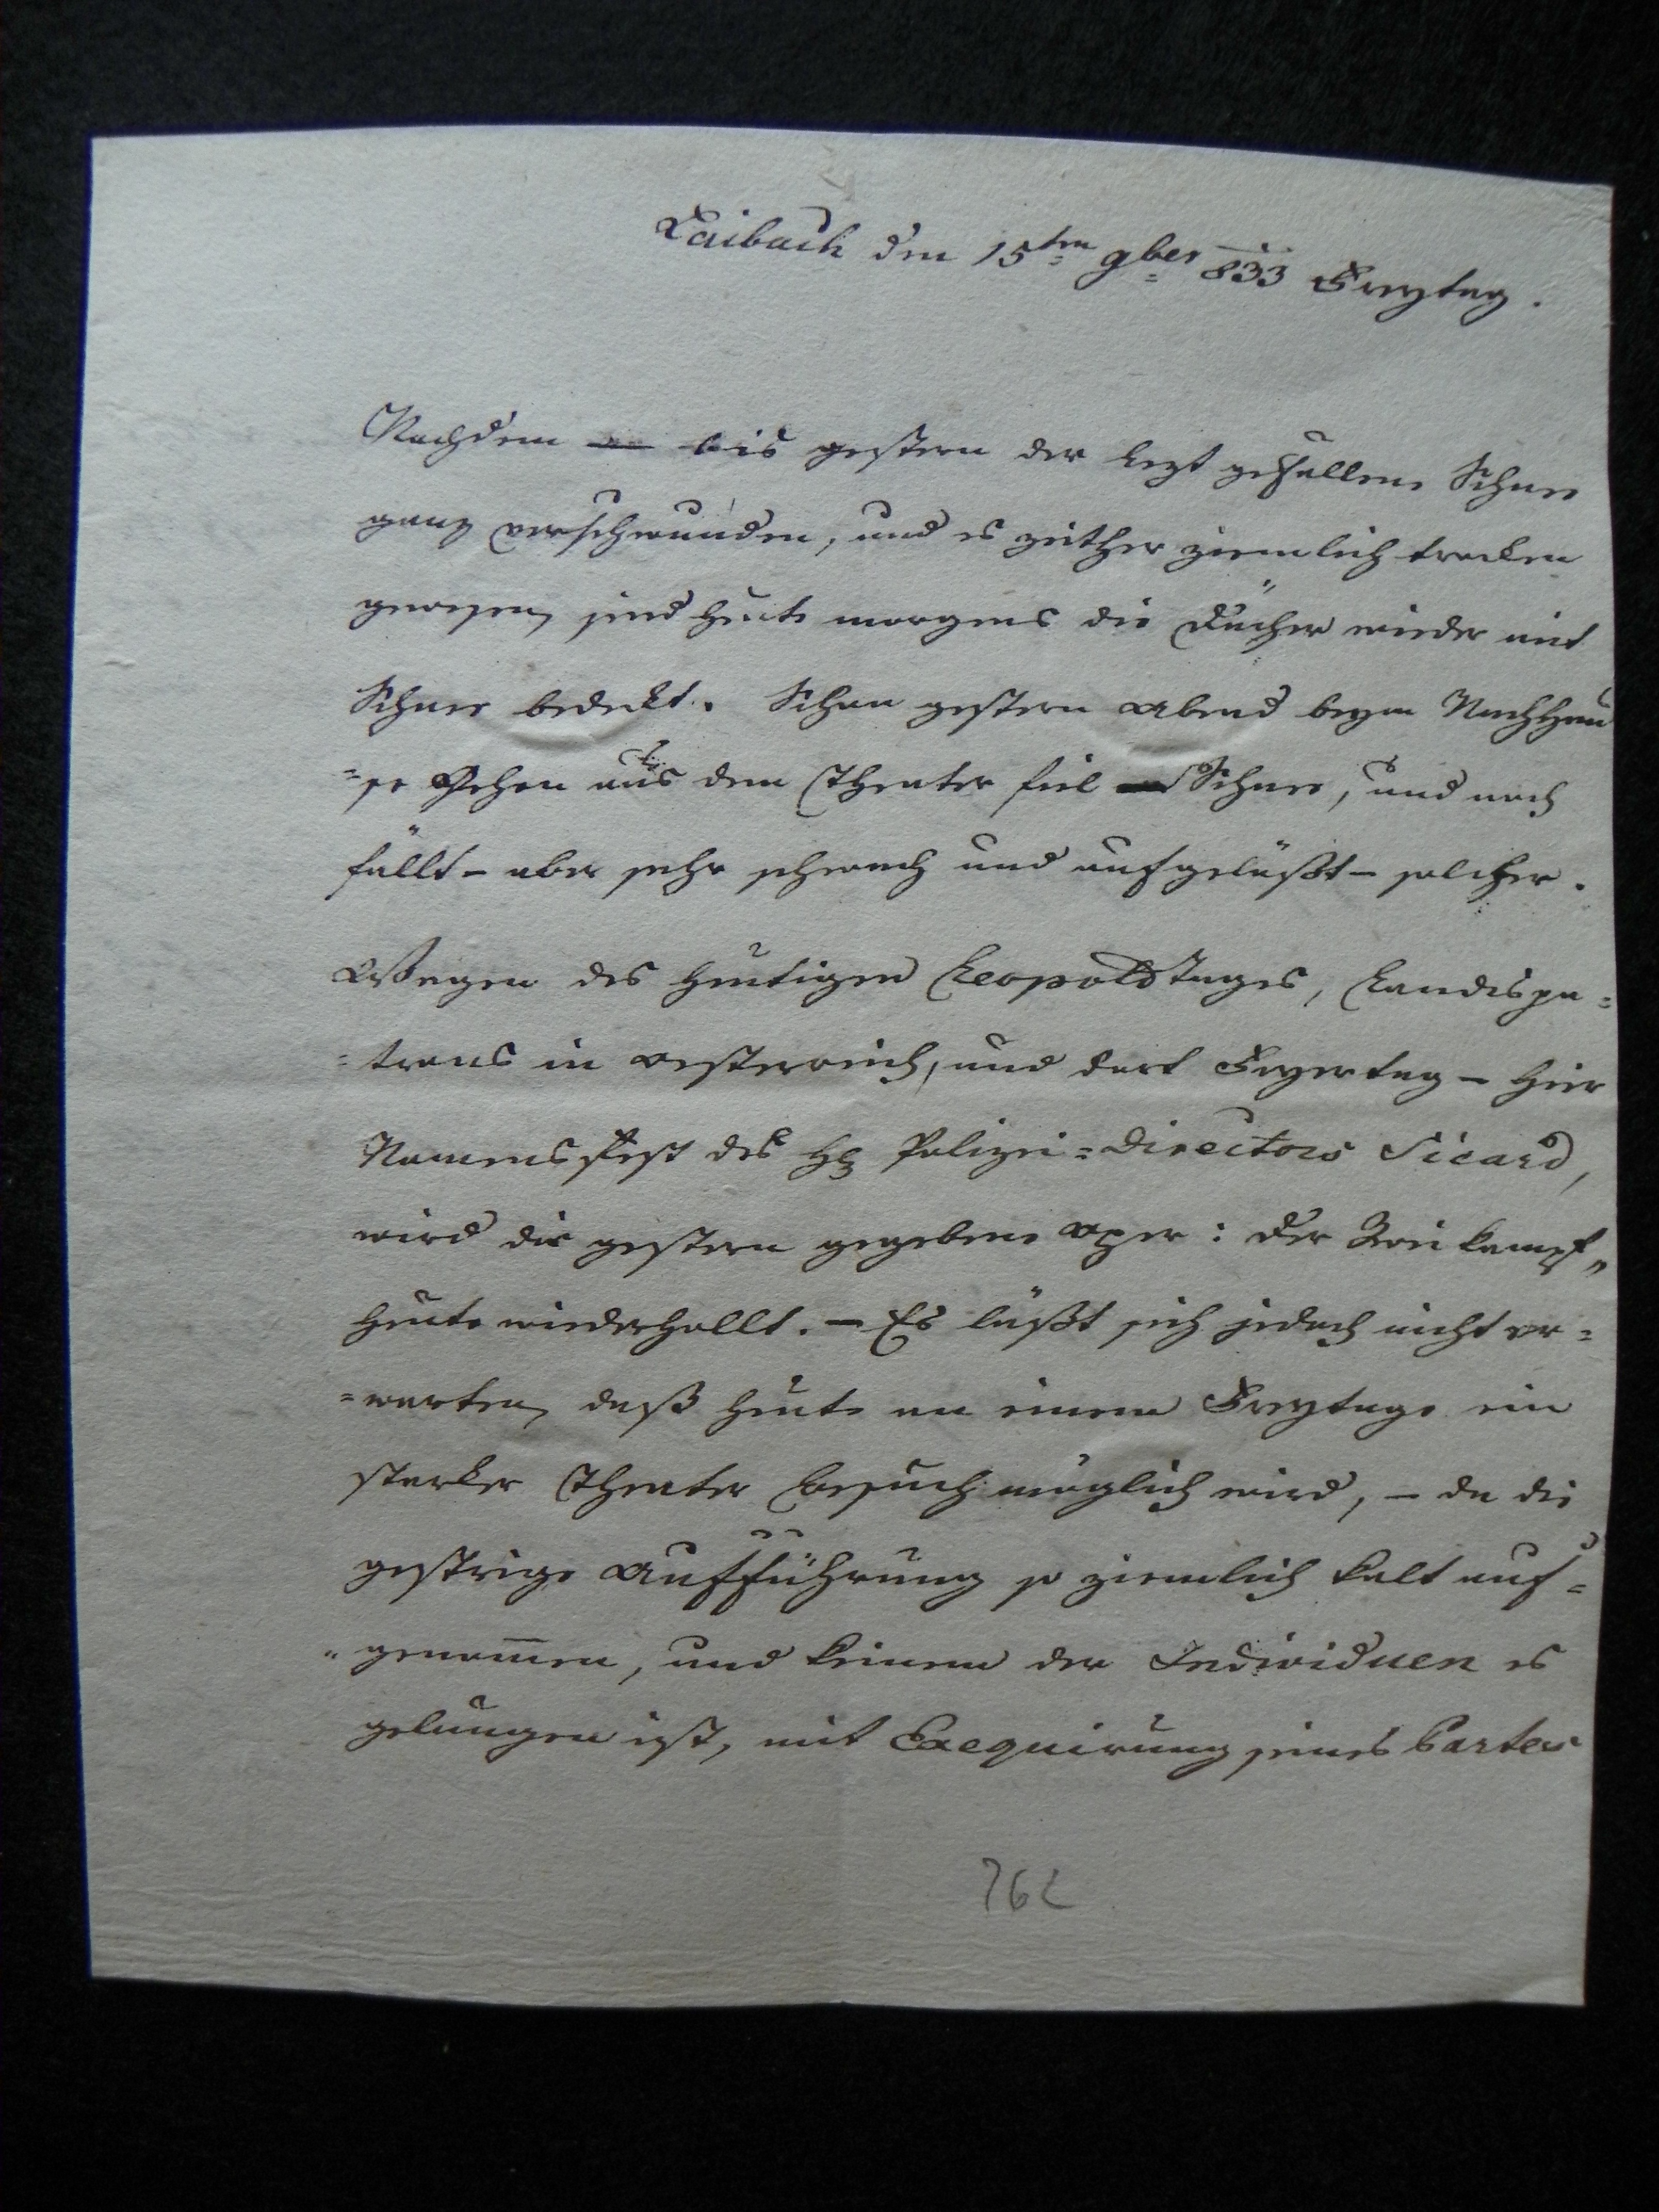 Laibach den 15ten 9ber 833 Freytag.
Nachdem bis gestern der lezt gefallene Schnee
ganz verschwunden, und es zeither ziemlich trocken
gewesen, sind heute morgens die Dächer wieder mit
Schnee bedekt. Schon gestern Abend beym Nachhau
=se Gehen aus dem Theater fiel Schnee, und noch
fällt – aber sehr schwach und aufgelößt – solcher.
Wegen des heutigen Leopolds Tages, Landespa=
=trons in Oesterreich, und dort Feyertag – hier
Namensfest des H Polizei=Directors Sicard,
wird die gestern gegebene Oper: der Zweikampf„
heute wiederhollt. – Es läßt sich jedoch nicht er=
=warten, daß heute an einem Freytage ein
starker Theater Besuch möglich wird, – da die
gestrige Aufführung so ziemlich kalt auf=
"genom̅en, und keinem der Individuen es
gelungen ist, mit Exequirung seines Partes
762